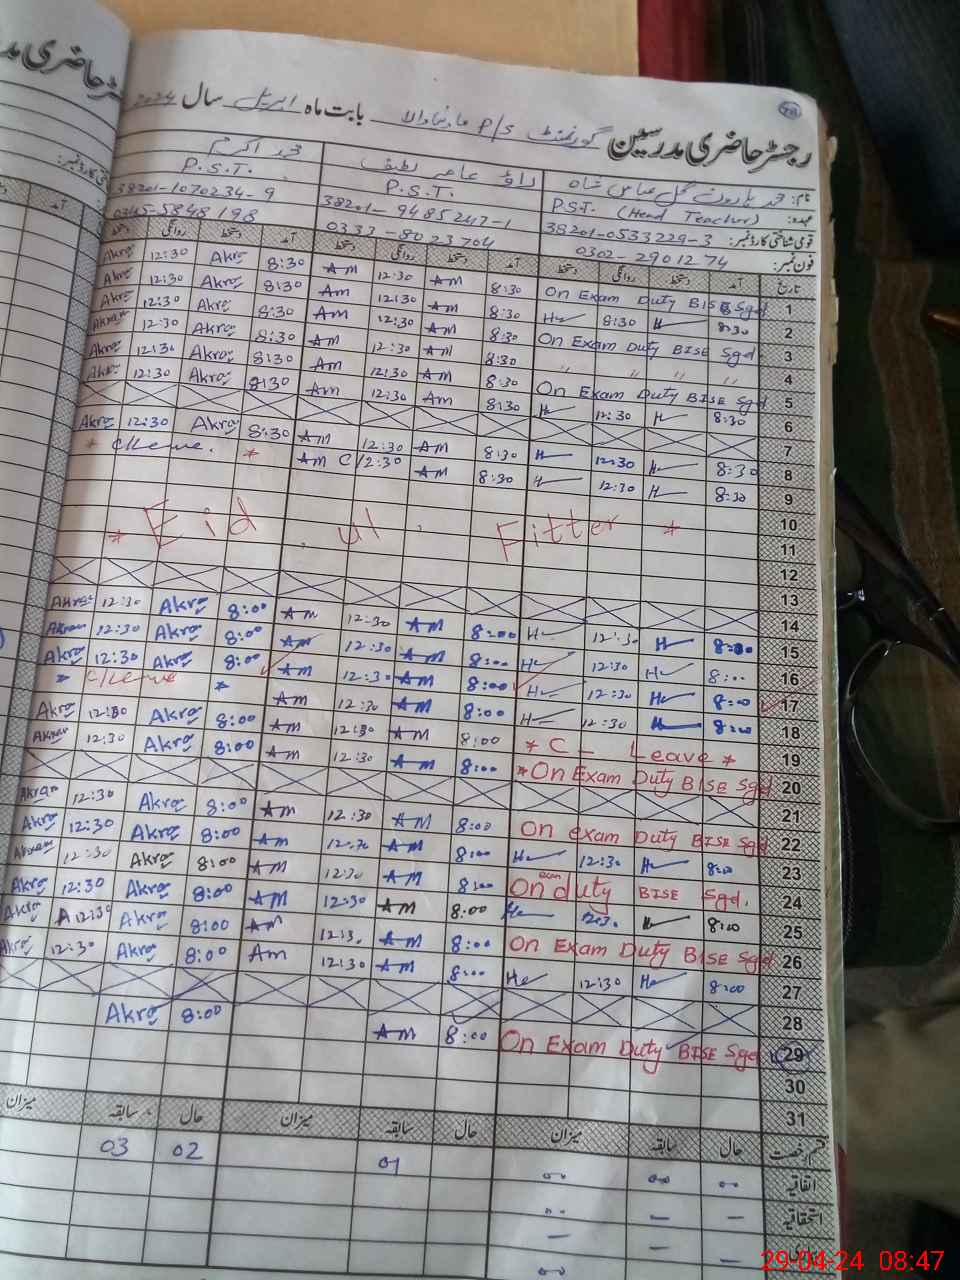 رجسٹر حاضری مدرسین گورنمنٹ P/S بابت ماہ اپریل سال 2024
نام: محمد ہارون گل عباس شاہ راؤ عامر لطیف محمد اکرم
عہدہ: P.S.T. (Head Teacher) P.S.T. P.S.T.
قومی شناختی کارڈ نمبر: 38201-0533229-3 38201-9485247-1 38201-1070234-9
فون نمبر: 0302-2901274 0333-8023704 0345-5848198
تاریخ آمد دستخط روانگی دستخط آمد دستخط روانگی دستخط آمد دستخط روانگی دستخط
1 On Exam Duty BISE Sgd 8:30 Am 12:30 Am 8:30 Akro 12:30 Akro
2 8:30 H 8:30 H 8:30 Am 12:30 Am 8:30 Akro 12:30 Akro
3 On Exam Duty BISE Sgd 8:30 Am 12:30 Am 8:30 Akro 12:30 Akro
4 " " " " 8:30 Am 12:30 Am 8:30 Akro 12:30 Akram
5 On Exam Duty BISE Sgd 8:30 Am 12:30 Am 8:30 Akro 12:30 Akro
6 8:30 H 12:30 H 8:30 Am 12:30 Am 8:30 Akro 12:30 Akro
7
8 8:30 H 12:30 H 8:30 Am 12:30 Am 8:30 Akro 12:30 Akro
9 8:30 H 12:30 H 8:30 Am 12:30 Am * C/Leave. *
10
11 * Eid ul Fitter *
12
13
14
15 8:00 H 12:30 H 8:00 Am 12:30 Am 8:00 Akro 12:30 Akro
16 8:00 H 12:30 H 8:00 Am 12:30 Am 8:00 Akro 12:30 Akram
17 8:00 H 12:30 H 8:00 Am 12:30 Am 8:00 Akro 12:30 Akro
18 8:00 H 12:30 H 8:00 Am 12:30 Am * C/Leave *
19 * C - Leave * 8:00 Am 12:30 Am 8:00 Akro 12:30 Akro
20 * On Exam Duty BISE Sgd 8:00 Am 12:30 Am 8:00 Akro 12:30 Akram
21
22 On exam Duty BISE Sgd 8:00 Am 12:30 Am 8:00 Akro 12:30 Akram
23 8:00 H 12:30 H 8:00 Am 12:30 Am 8:00 Akro 12:30 Akro
24 On exam duty BISE Sgd. 8:00 Am 12:30 Am 8:00 Akro 12:30 Akram
25 8:00 H 12:30 H 8:00 Am 12:30 Am 8:00 Akro 12:30 Akro
26 On Exam Duty BISE Sgd 8:00 Am 12:30 Am 8:00 Akro 12:30 Akro
27 8:00 H 12:30 H 8:00 Am 12:30 Am 8:00 Akro 12:30 Akro
28
29 On Exam Duty BISE Sgd 8:00 Am 8:00 Akro
30
31
قسم رخصت حال سابقہ میزان حال سابقہ میزان حال سابقہ میزان
اتفاقیہ 01 02 03
استحقاقیہ
29-04-24 08:47